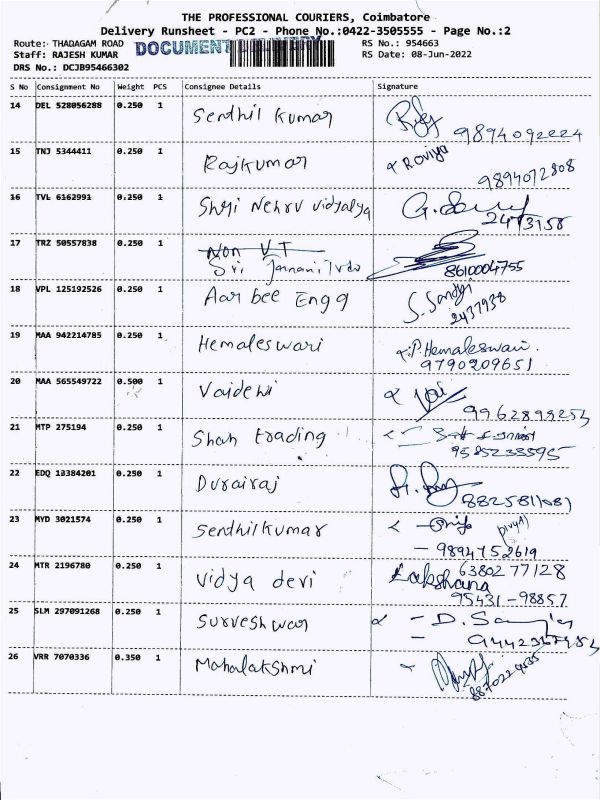 THE PROFESSIONAL COURIERS, Coimbatore
Delivery Runsheet - PC2 - Phone No.:0422-3505555 - Page No.:2
Route: THADAGAM ROAD DOCUMENT DELIVERY RS No.: 954663
Staff: RAJESH KUMAR RS Date: 08-Jun-2022
DRS No.: DCJB95466302
S No Consignment No Weight PCS Consignee Details Signature
14 DEL 528056288 0.250 1 Senthil Kumar
9894092224
15 TNJ 5344411 0.250 1 Rajkumar Roviya
9894072808
16 TVL 6162991 0.250 1 Shri Nehru Vidyalya
2473158
17 TRZ 50557838 0.250 1 Non V T
Sri 8610004755
18 VPL 125192526 0.250 1 Aar bee Engg S. Sandya
2437938
19 MAA 942214785 0.250 1 Hemaleswari P. Hemaleswari.
9790209651
20 MAA 565549722 0.500 1 Vaidehi Vai
9962899253
21 MTP 275194 0.250 1 Shah trading
9585233595
22 EDQ 13384201 0.250 1 Durairaj
8825811081
23 MYD 3021574 0.250 1 Senthilkumar
- 9894752619
24 MTR 2196780 0.250 1 Vidya devi 63802 77128
Lakshana
95431-98857
25 SLM 297091268 0.250 1 Surveshwar - D. San
26 VRR 7070336 0.350 1 Mahalakshmi
8870229535